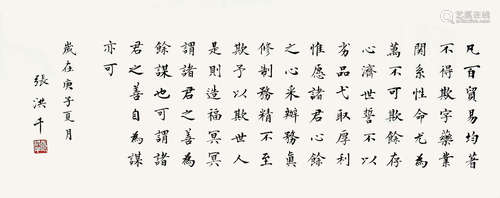 凡百貿易均著
不得欺字藥業
関系性命尤為
萬不可欺餘存
心濟世誓不以
劣品弋取厚利
惟愿諸君心餘
之心采辦務眞
修制務精不至
欺予以欺世人
是則造福冥冥
謂諸君之善為
餘謀也可謂諸
君之善自為謀
亦可
歲在庚子夏月
張洪千
艺狐在线